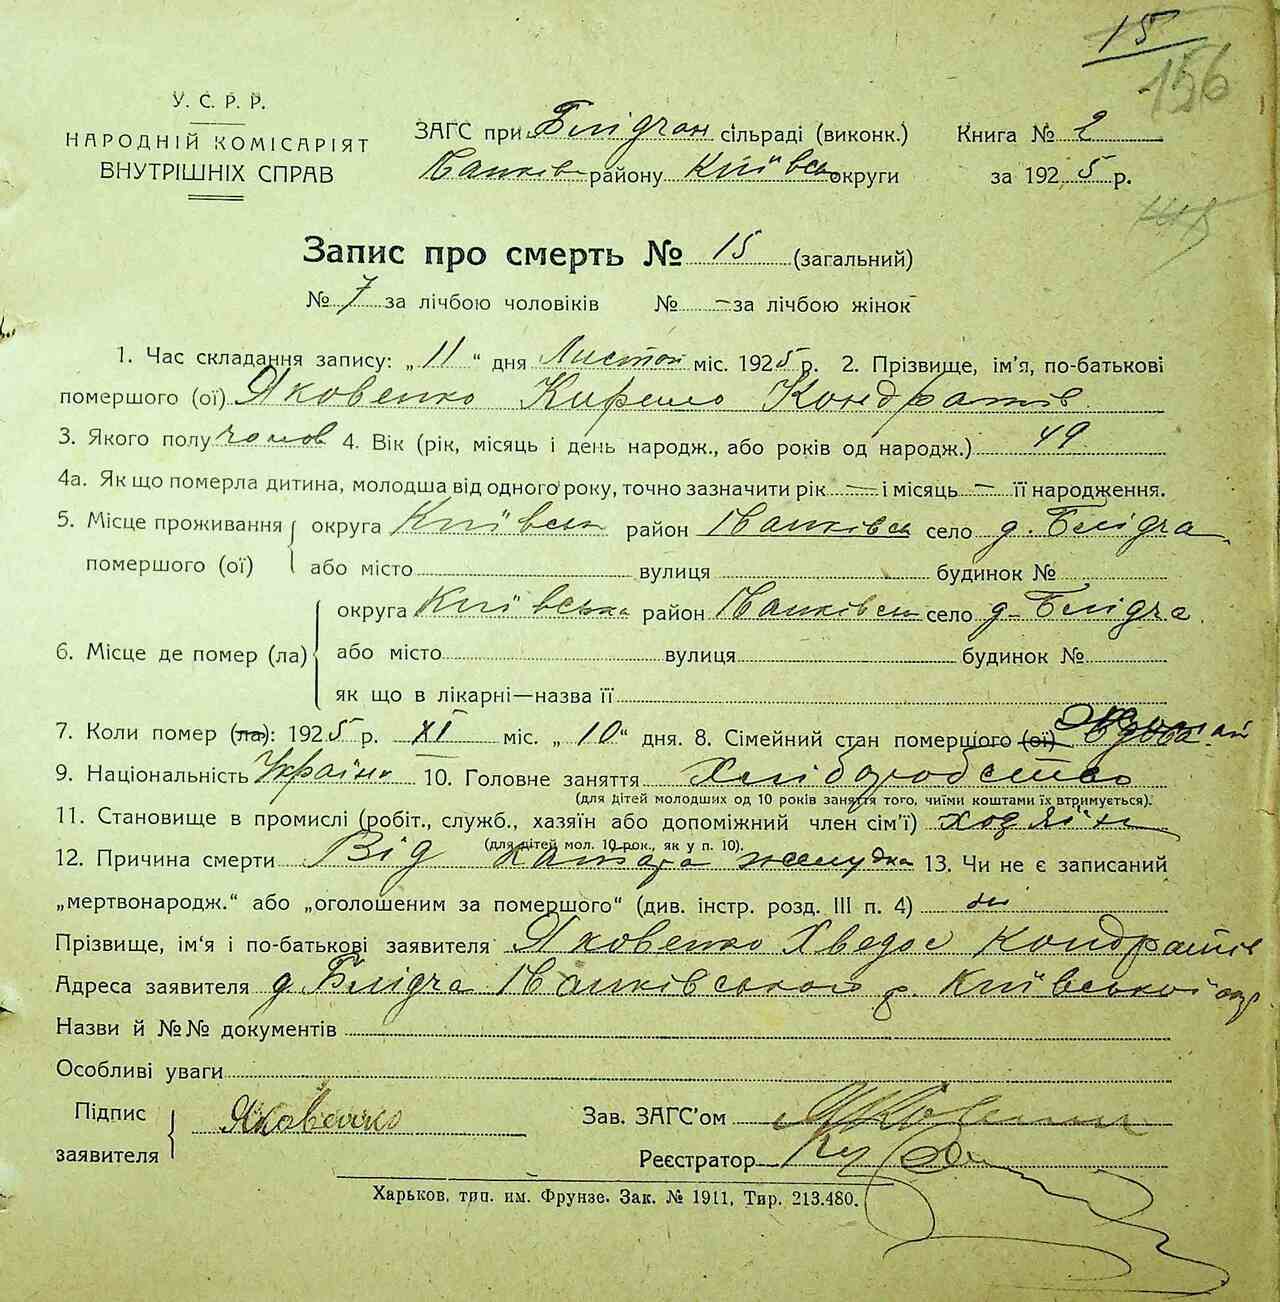 15
156
У. С. Р. Р.
НАРОДНІЙ КОМІСАРІЯТ
ВНУТРІШНІХ СПРАВ
ЗАГС при сільраді (виконк.) Книга № 2
району Київсь округи за 1925 р.
Запис про смерть № 15 (загальний)
№ 7 за лічбою чоловіків № — за лічбою жінок
1. Час складання запису: „11“ дня Листоп міс. 1925 р. 2. Прізвище, ім'я, по-батькові
помершого (ої) Яковенко Кирило Кондратів
3. Якого полу чолов 4. Вік (рік, місяць і день народж., або років од народж.) 49
4а. Як що померла дитина, молодша від одного року, точно зазначити рік — і місяць — її народження.
5. Місце проживання помершого (ої) округа Київськ район село д. Білдча
або місто вулиця будинок №
6. Місце де помер (ла) округа Київська район село д. Білдча
або місто вулиця будинок №
як що в лікарні—назва її
7. Коли помер (ла): 1925 р. XI міс. „10“ дня. 8. Сімейний стан помершого (ої)
9. Національність Україн 10. Головне заняття Хліборобство
(для дітей молодших од 10 років заняття того, чиїми коштами їх втримується).
11. Становище в промислі (робіт., служб., хазяїн або допоміжний член сім'ї) хозяїн
(для дітей мол. 10 рок., як у п. 10).
12. Причина смерти Від катара желудка 13. Чи не є записаний
„мертвонародж.“ або „оголошеним за помершого“ (див. інстр. розд. III п. 4) ні
Прізвище, ім'я і по-батькові заявителя Яковенко Хведос Кондратів
Адреса заявителя д. Білдча р. Київської окр
Назви й №№ документів
Особливі уваги
Підпис заявителя Яковенко Зав. ЗАГС'ом
Реєстратор
Харьков, тип. им. Фрунзе. Зак. № 1911, Тир. 213.480.